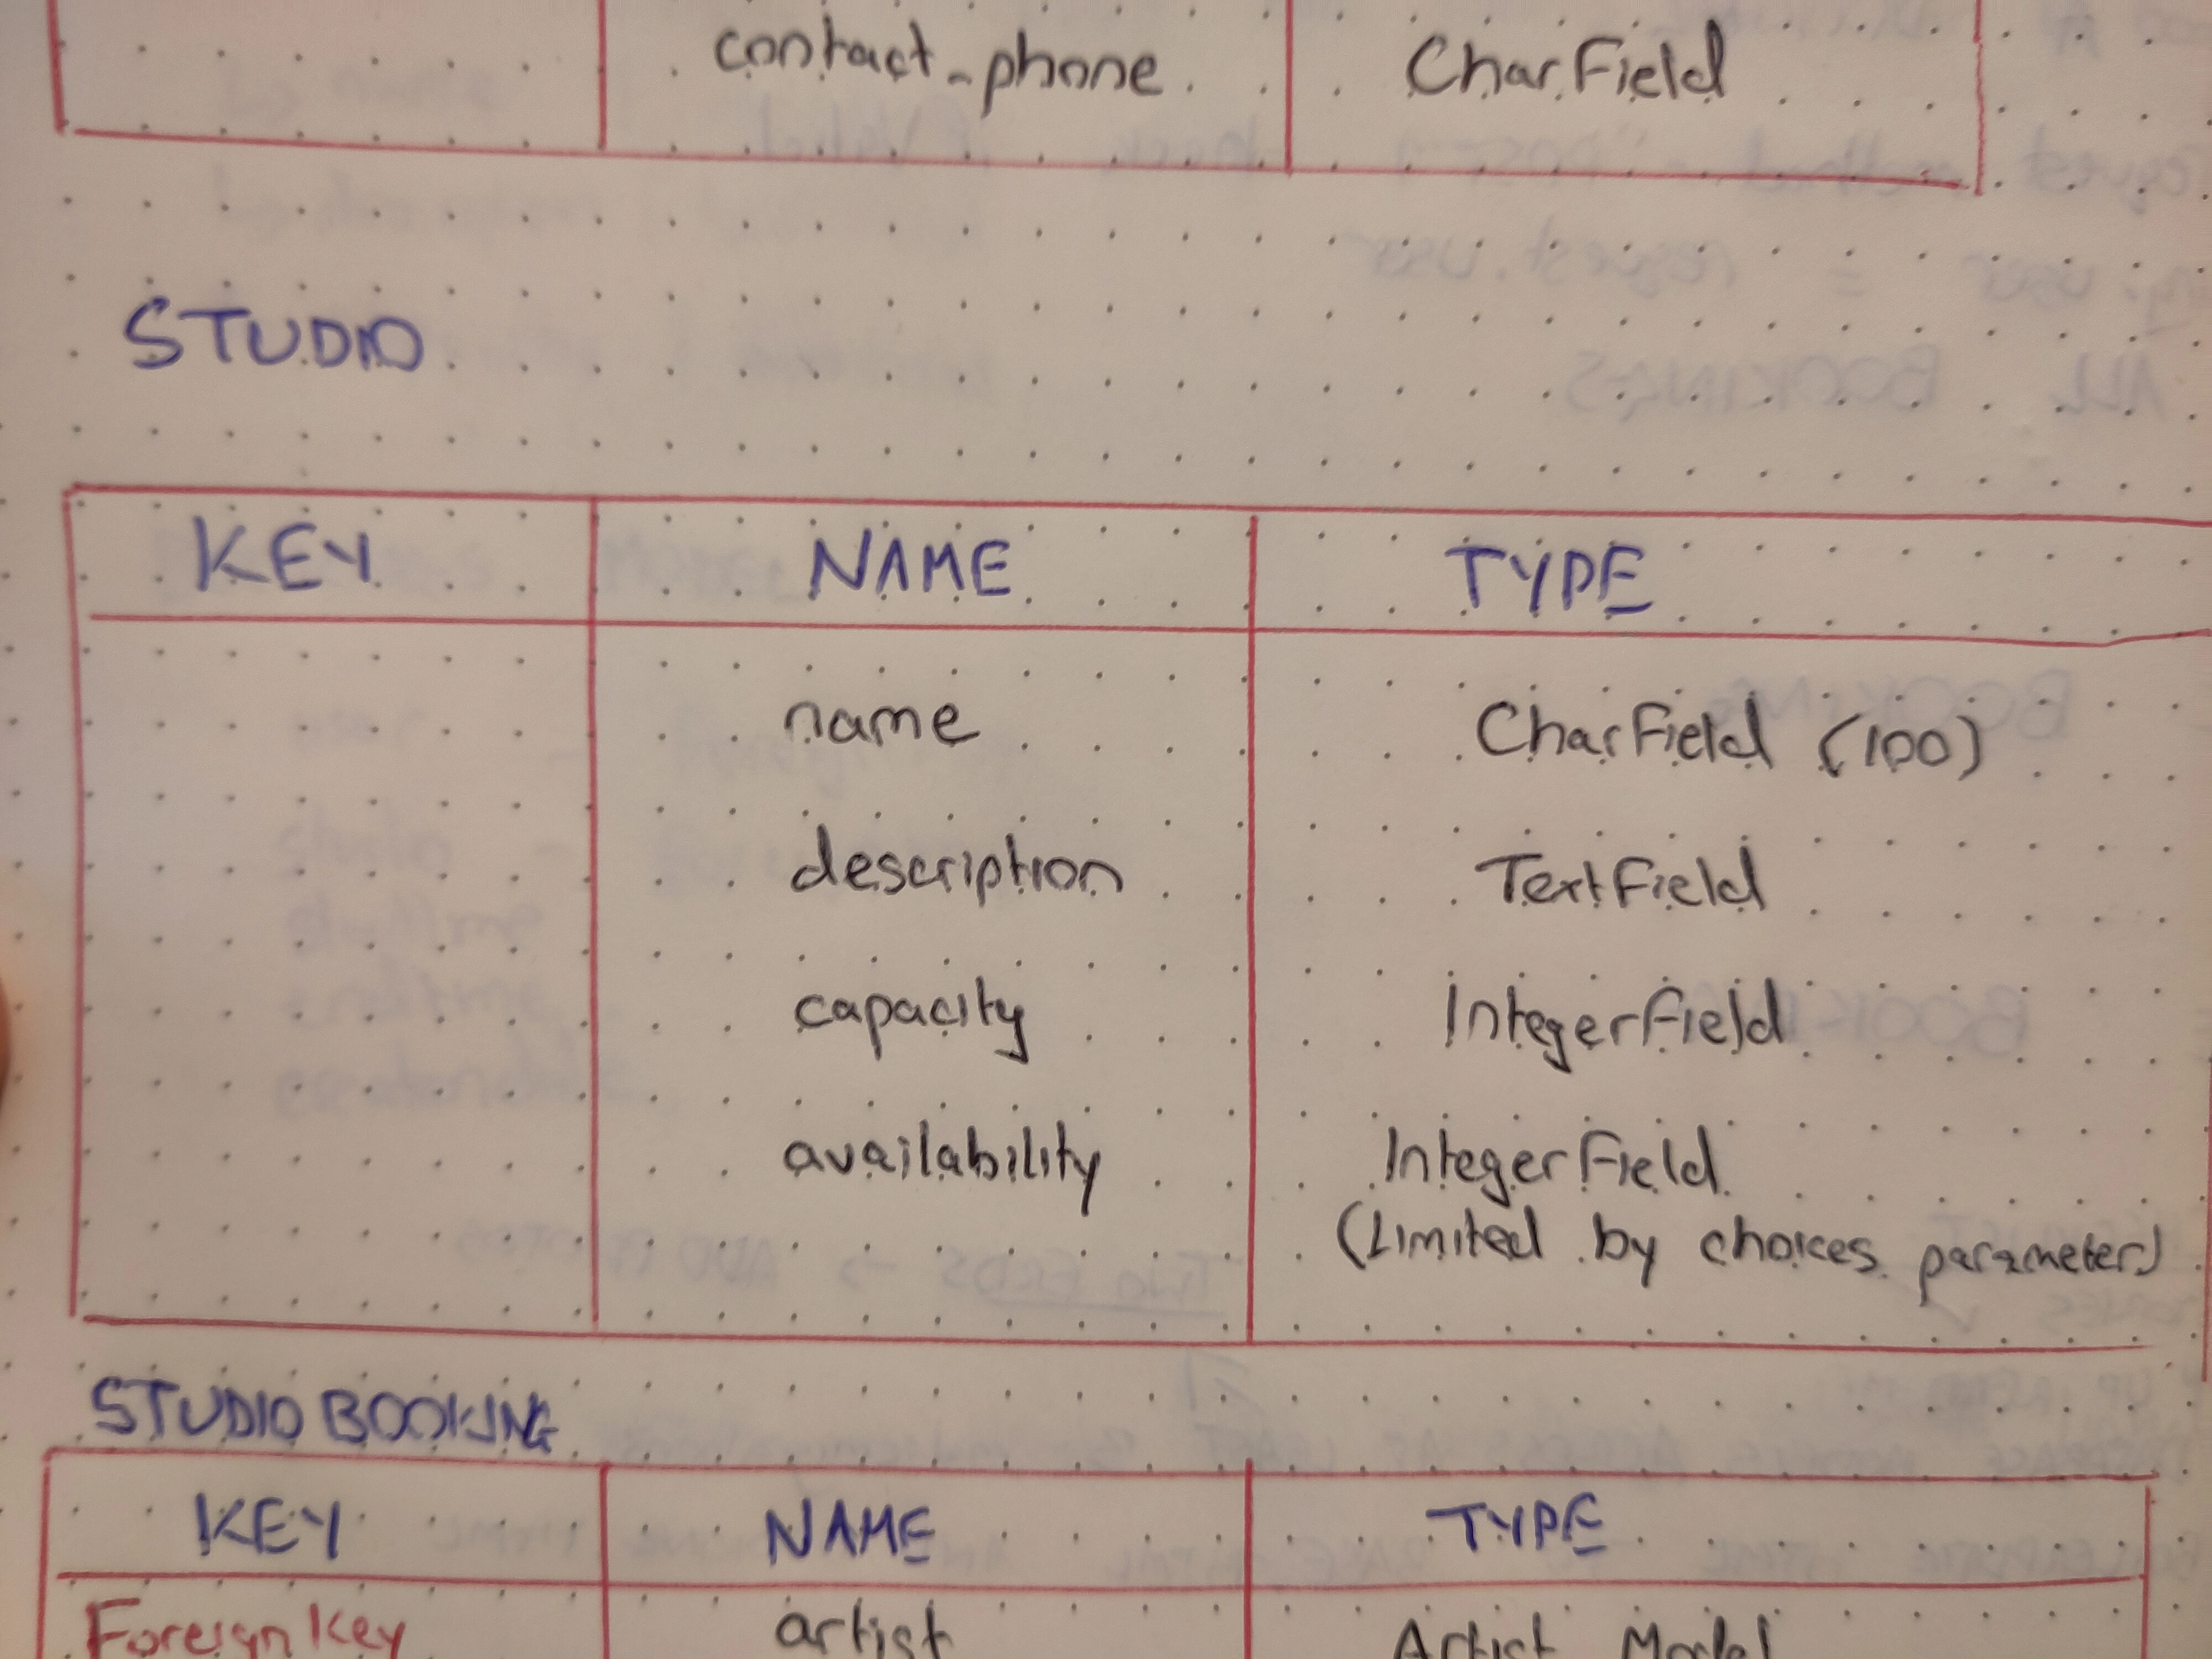 contact_phone CharField
STUDIO
KEY NAME TYPE
name CharField (100)
description TextField
capacity IntegerField
availability IntegerField
(Limited by choices parameter)
STUDIO BOOKING
KEY NAME TYPE
Foreign Key artist Artist Model